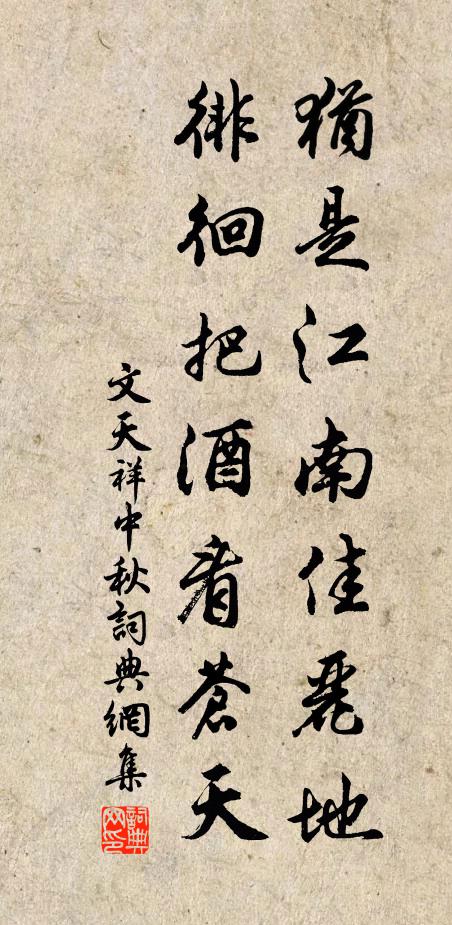 猶是江南佳麗地
徘徊把酒看蒼天
文天祥中秋詞典網集
詞典网印